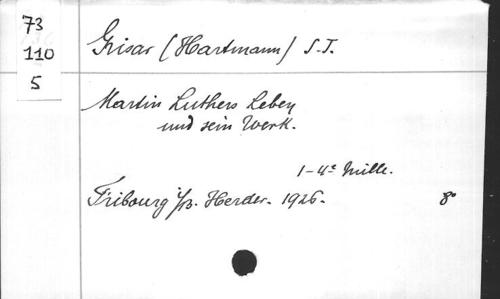 73
110
5
Grisar (Hartmann) S.J.
Martin Luthers Leben
und sein Werk.
1-4e mille.
Fribourg i/B. Herder. 1926.
8°